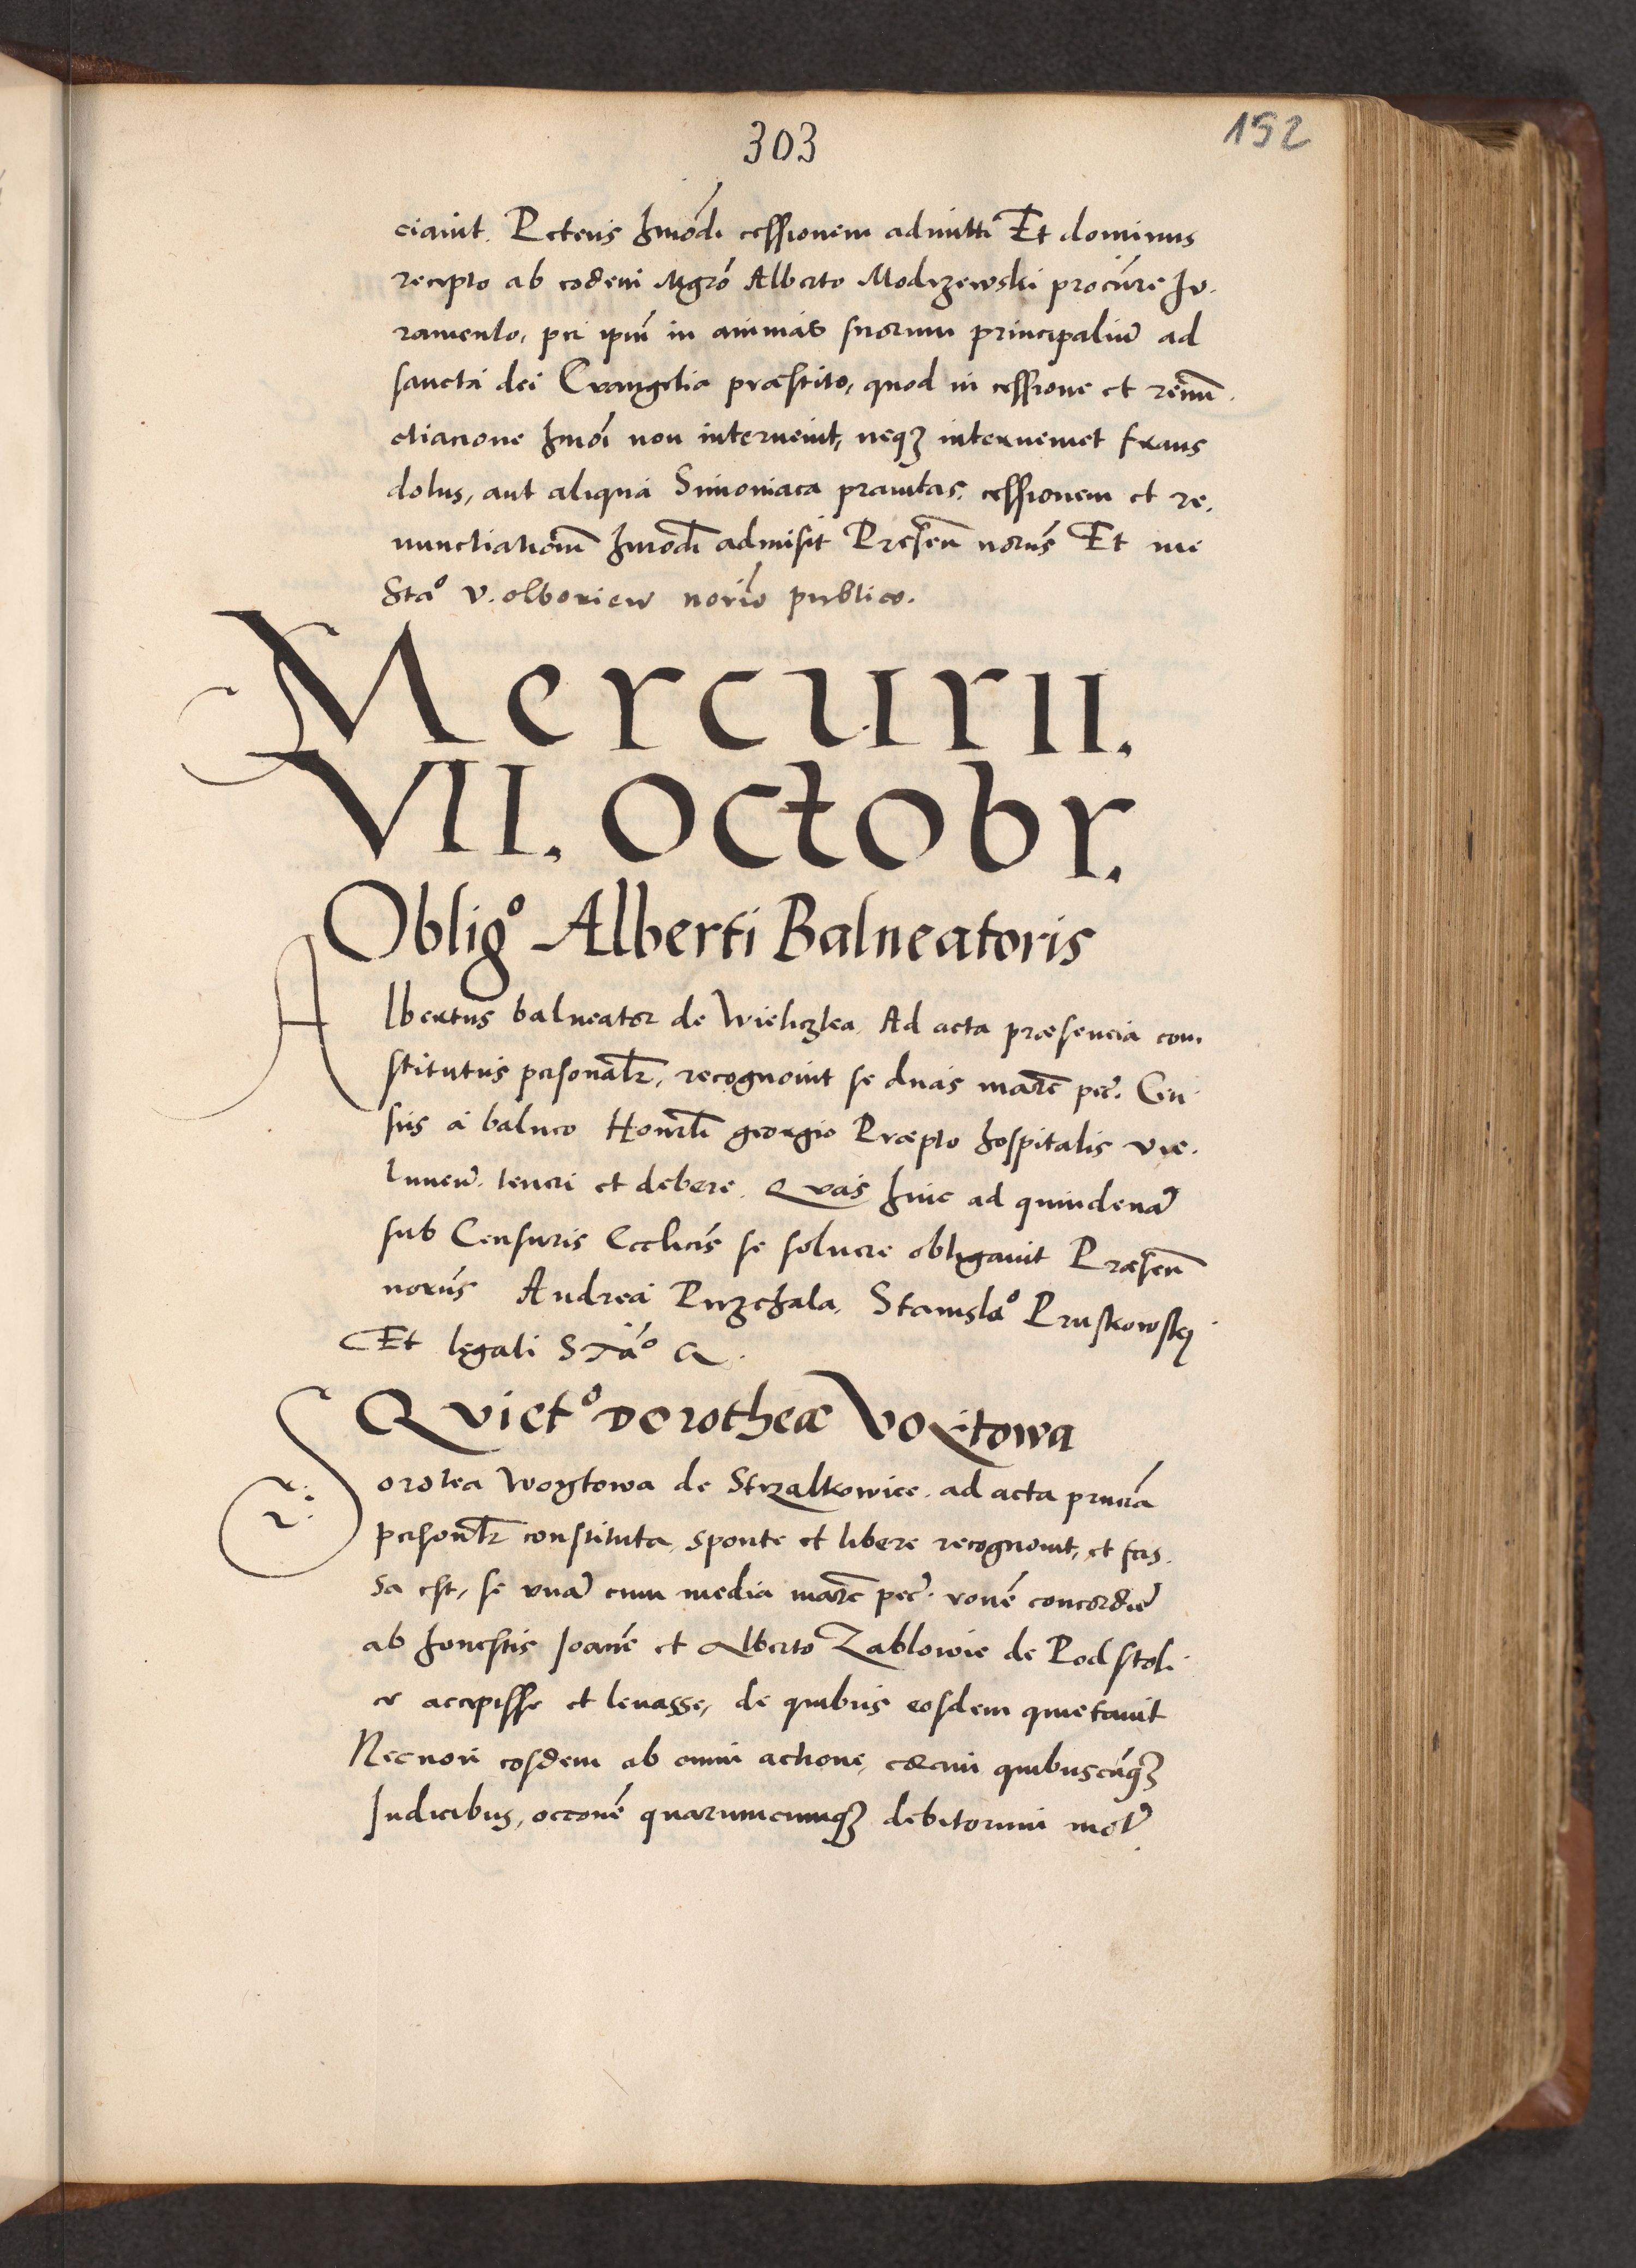 303
192
ciavit. Petens hmōdi cessionem admitti Et dominus
recepto ab eodem Mgrō Alberto Modrzewski procūre Ju-
ramento, per ipm̄ in animas suorum principaliū ad
sancta dei Evangelia præstito, quod in cessione et renun-
ctiacione hmōi non intervenit, neqȝ interveniet fraus
dolus, aut aliqua Simoniaca pravitas, cessionem et re-
nunctiationem̄ hmodī admisit Presen̄ norūs Et me
Staº Wolboriew norīo publico.
Mercurii.
VII. Octobr.
Obligº Alberti Balneatoris
Albertus balneator de Wieliczka, Ad acta præsencia con-
stitutus personalr̄, recognovit se duas marc̄ pec̄. Cen-
sus a balneo Honorabli georgio Præpto hospitalis vie-
lunen̄. teneri et debere. Quas hinc ad quindenā
sub Censuris Ecclicis̄ se solvere obligavit Præsen̄
norūs Andrea Przchala, Stanislaº Pruskowskÿ
Et legati Staº Q.
Quietº Dorotheæ Woÿtowa
Dorotea Woÿtowa de Strzalkowice ad acta prntīa
personlr̄ constituta, sponte et libere recognovit, et fas-
sa est, se unā cum media marc̄ pec̄. rone concordiē
ab honestis Joanē et Alberto Zablowie de Podstoli-
ce accepisse et levasse, de quibus eosdem quietavit
Necnon eosdem ab omni actione, coram quibuscūqȝ
Judicibus, occonē quarumcunqȝ debitorum mot̄